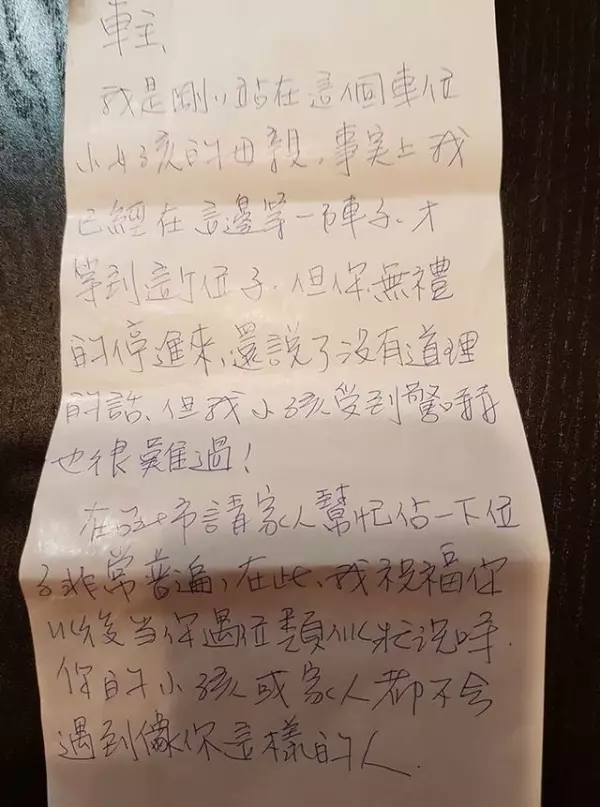 車主、
我是剛剛站在這個車位
小女孩的母親，事実上我
已經在這邊等一陣子、才
等到這个位子．但你無禮
的停進來，還說了沒有道理
的話、但我小孩受到驚嚇
也很難過！
在市請家人幫忙佔一下位
子非常普遍，在此、我祝福你
以後当你遇位類似狀況時．
你的小孩或家人都不会
遇到像你這樣的人．